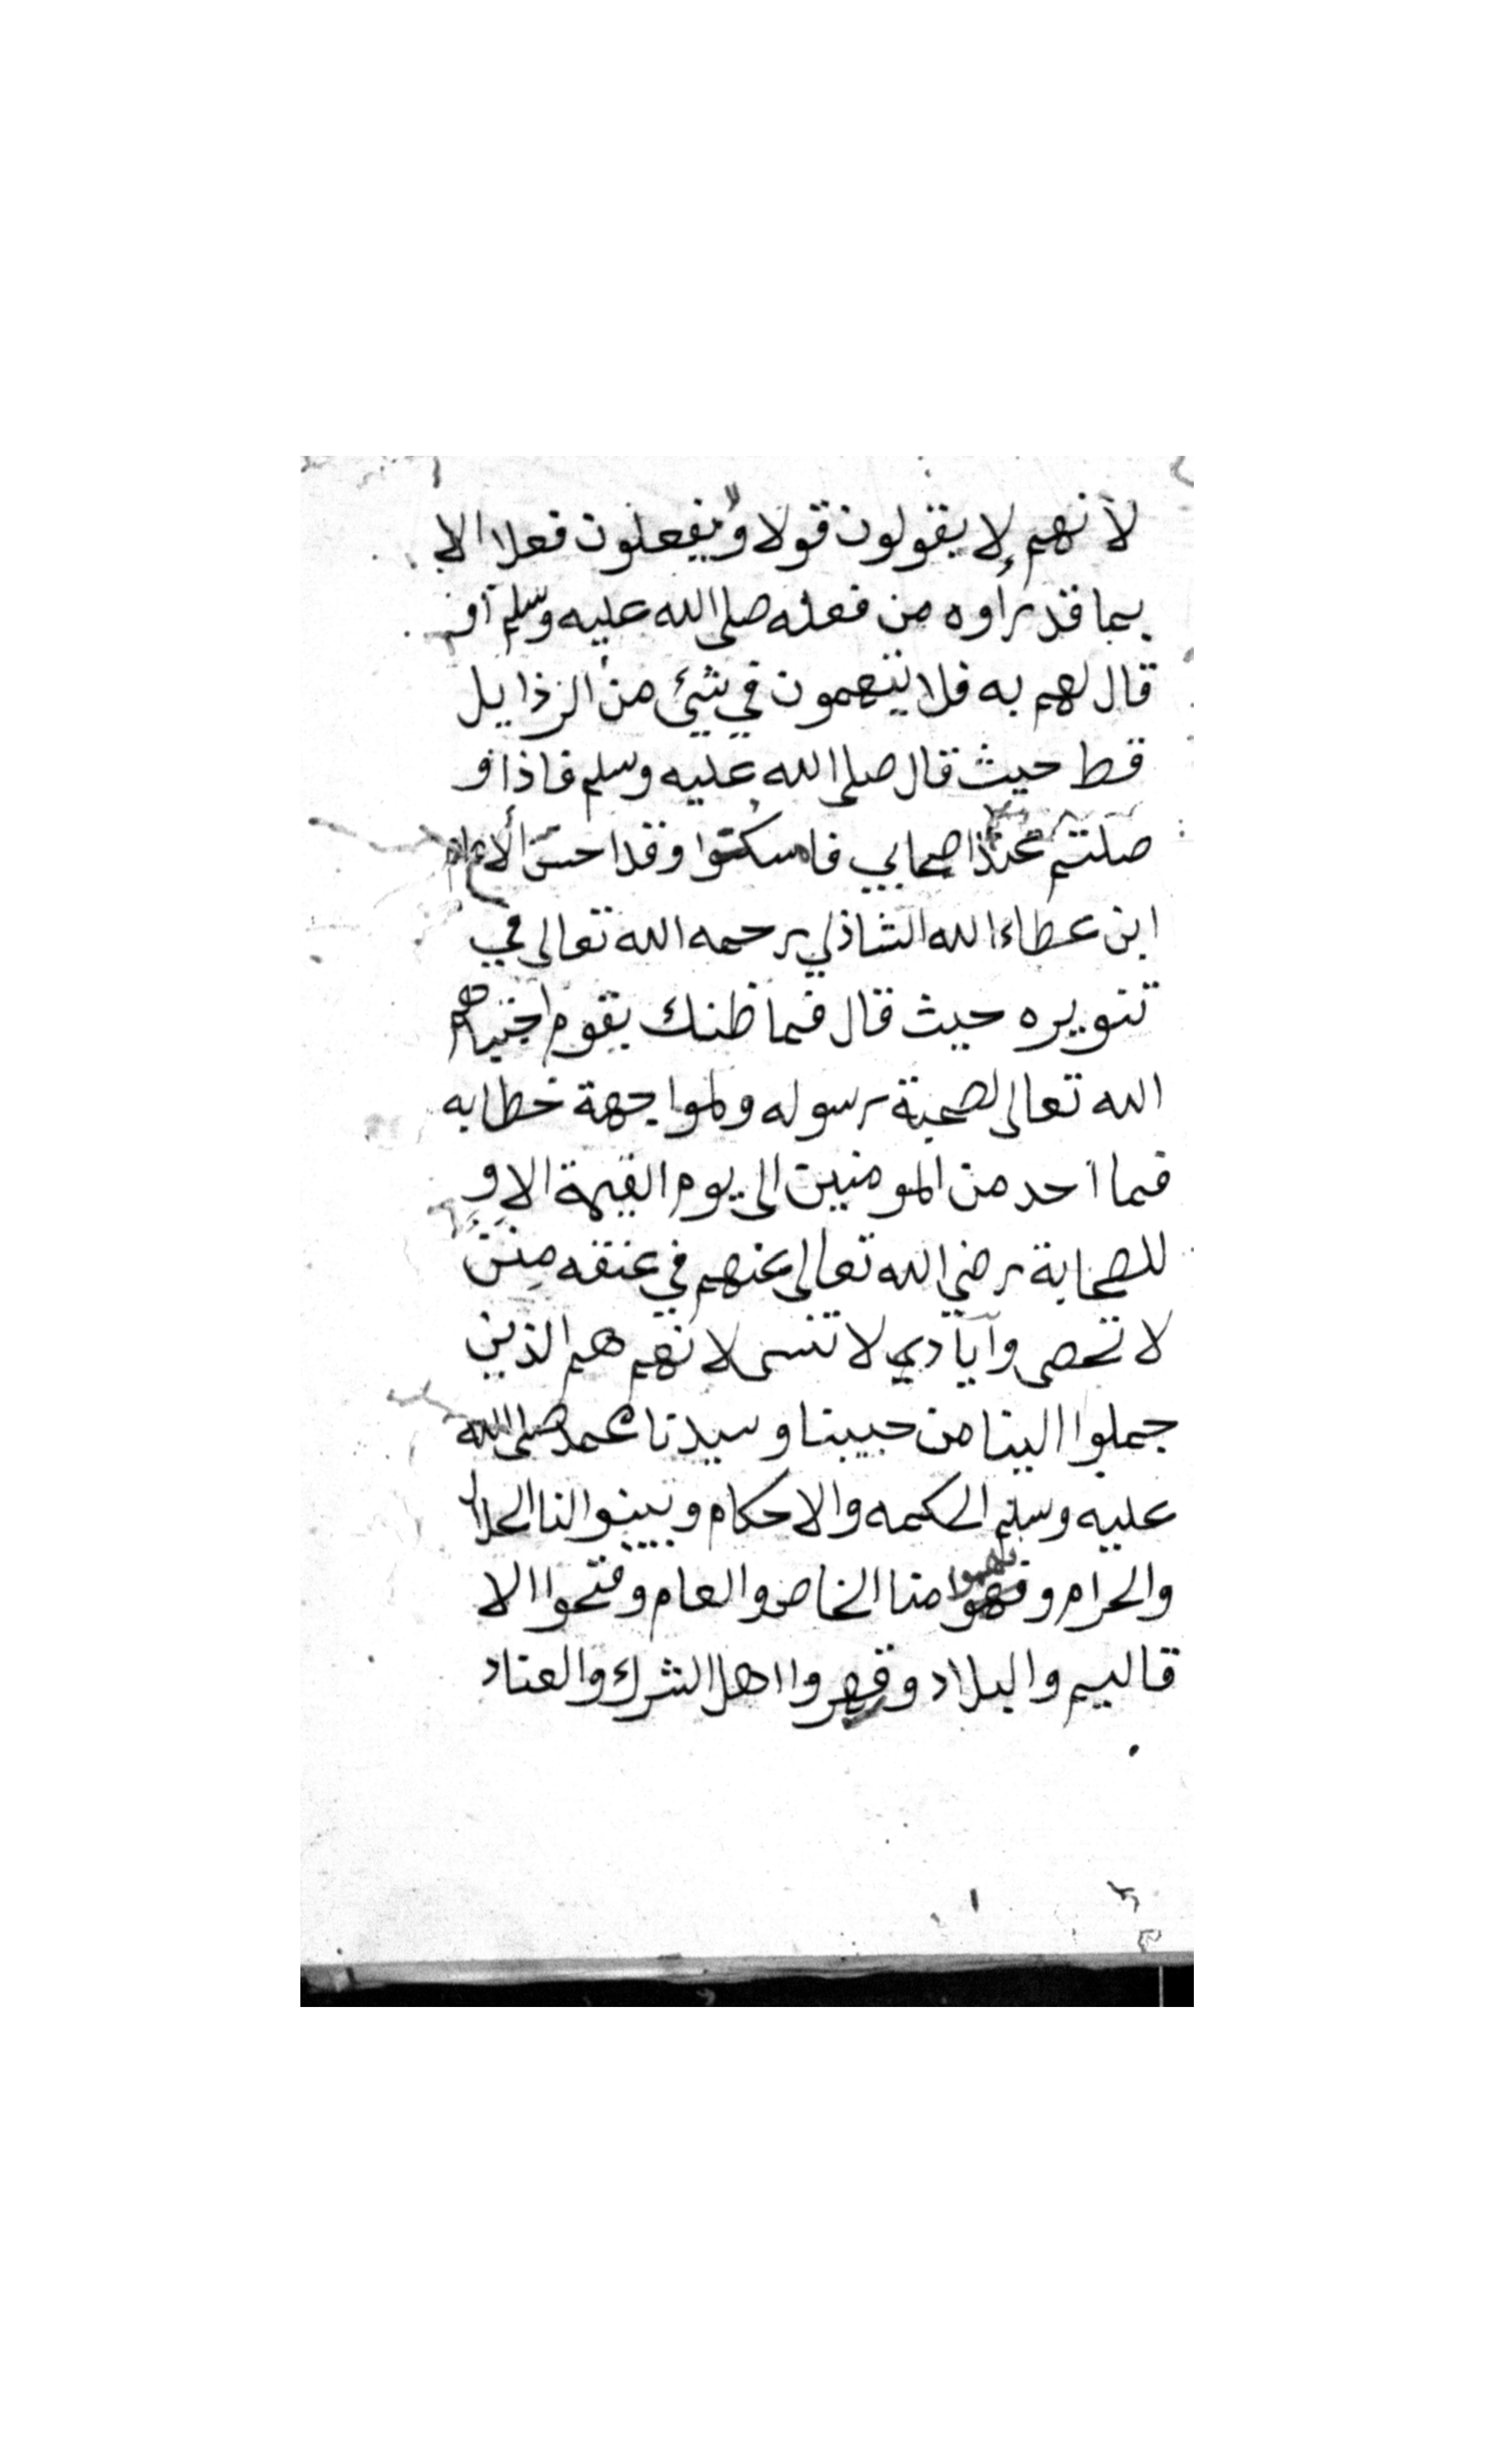 لانهم لا يقولون قولا ويفعلون فعلا الا
بما قد رأوه من فعله صلى الله عليه وسلم او
قال لهم به فلا يتهمون في شئ من الرذايل
قط حيث قال صلى الله عليه وسلم فاذا و
صلتم عند اصحابي فامسكتوا وقد احسن الامام
ابن عطاء الله الشاذلي رحمه الله تعالى في
تنويره حيث قال فما ظنك بقوم اختياهم
الله تعالى لصحبة رسوله ولمواجهة خطابه
فما احد من المومنين الى يوم القيمة الا و
للصحابة رضي الله تعالى عنهم في عنقه منن
لا تحصى وآيادي لا تنسى لانهم هم الذين
حملوا الينا من حبيبنا وسيدنا محمد صلى الله
عليه وسلم الحكمه والاحكام وبينوا لنا الحلال
والحرام وفهموا منا الخاص والعام وفتحوا الا
قاليم والبلاد وقهروا اهل الشرك والعناد